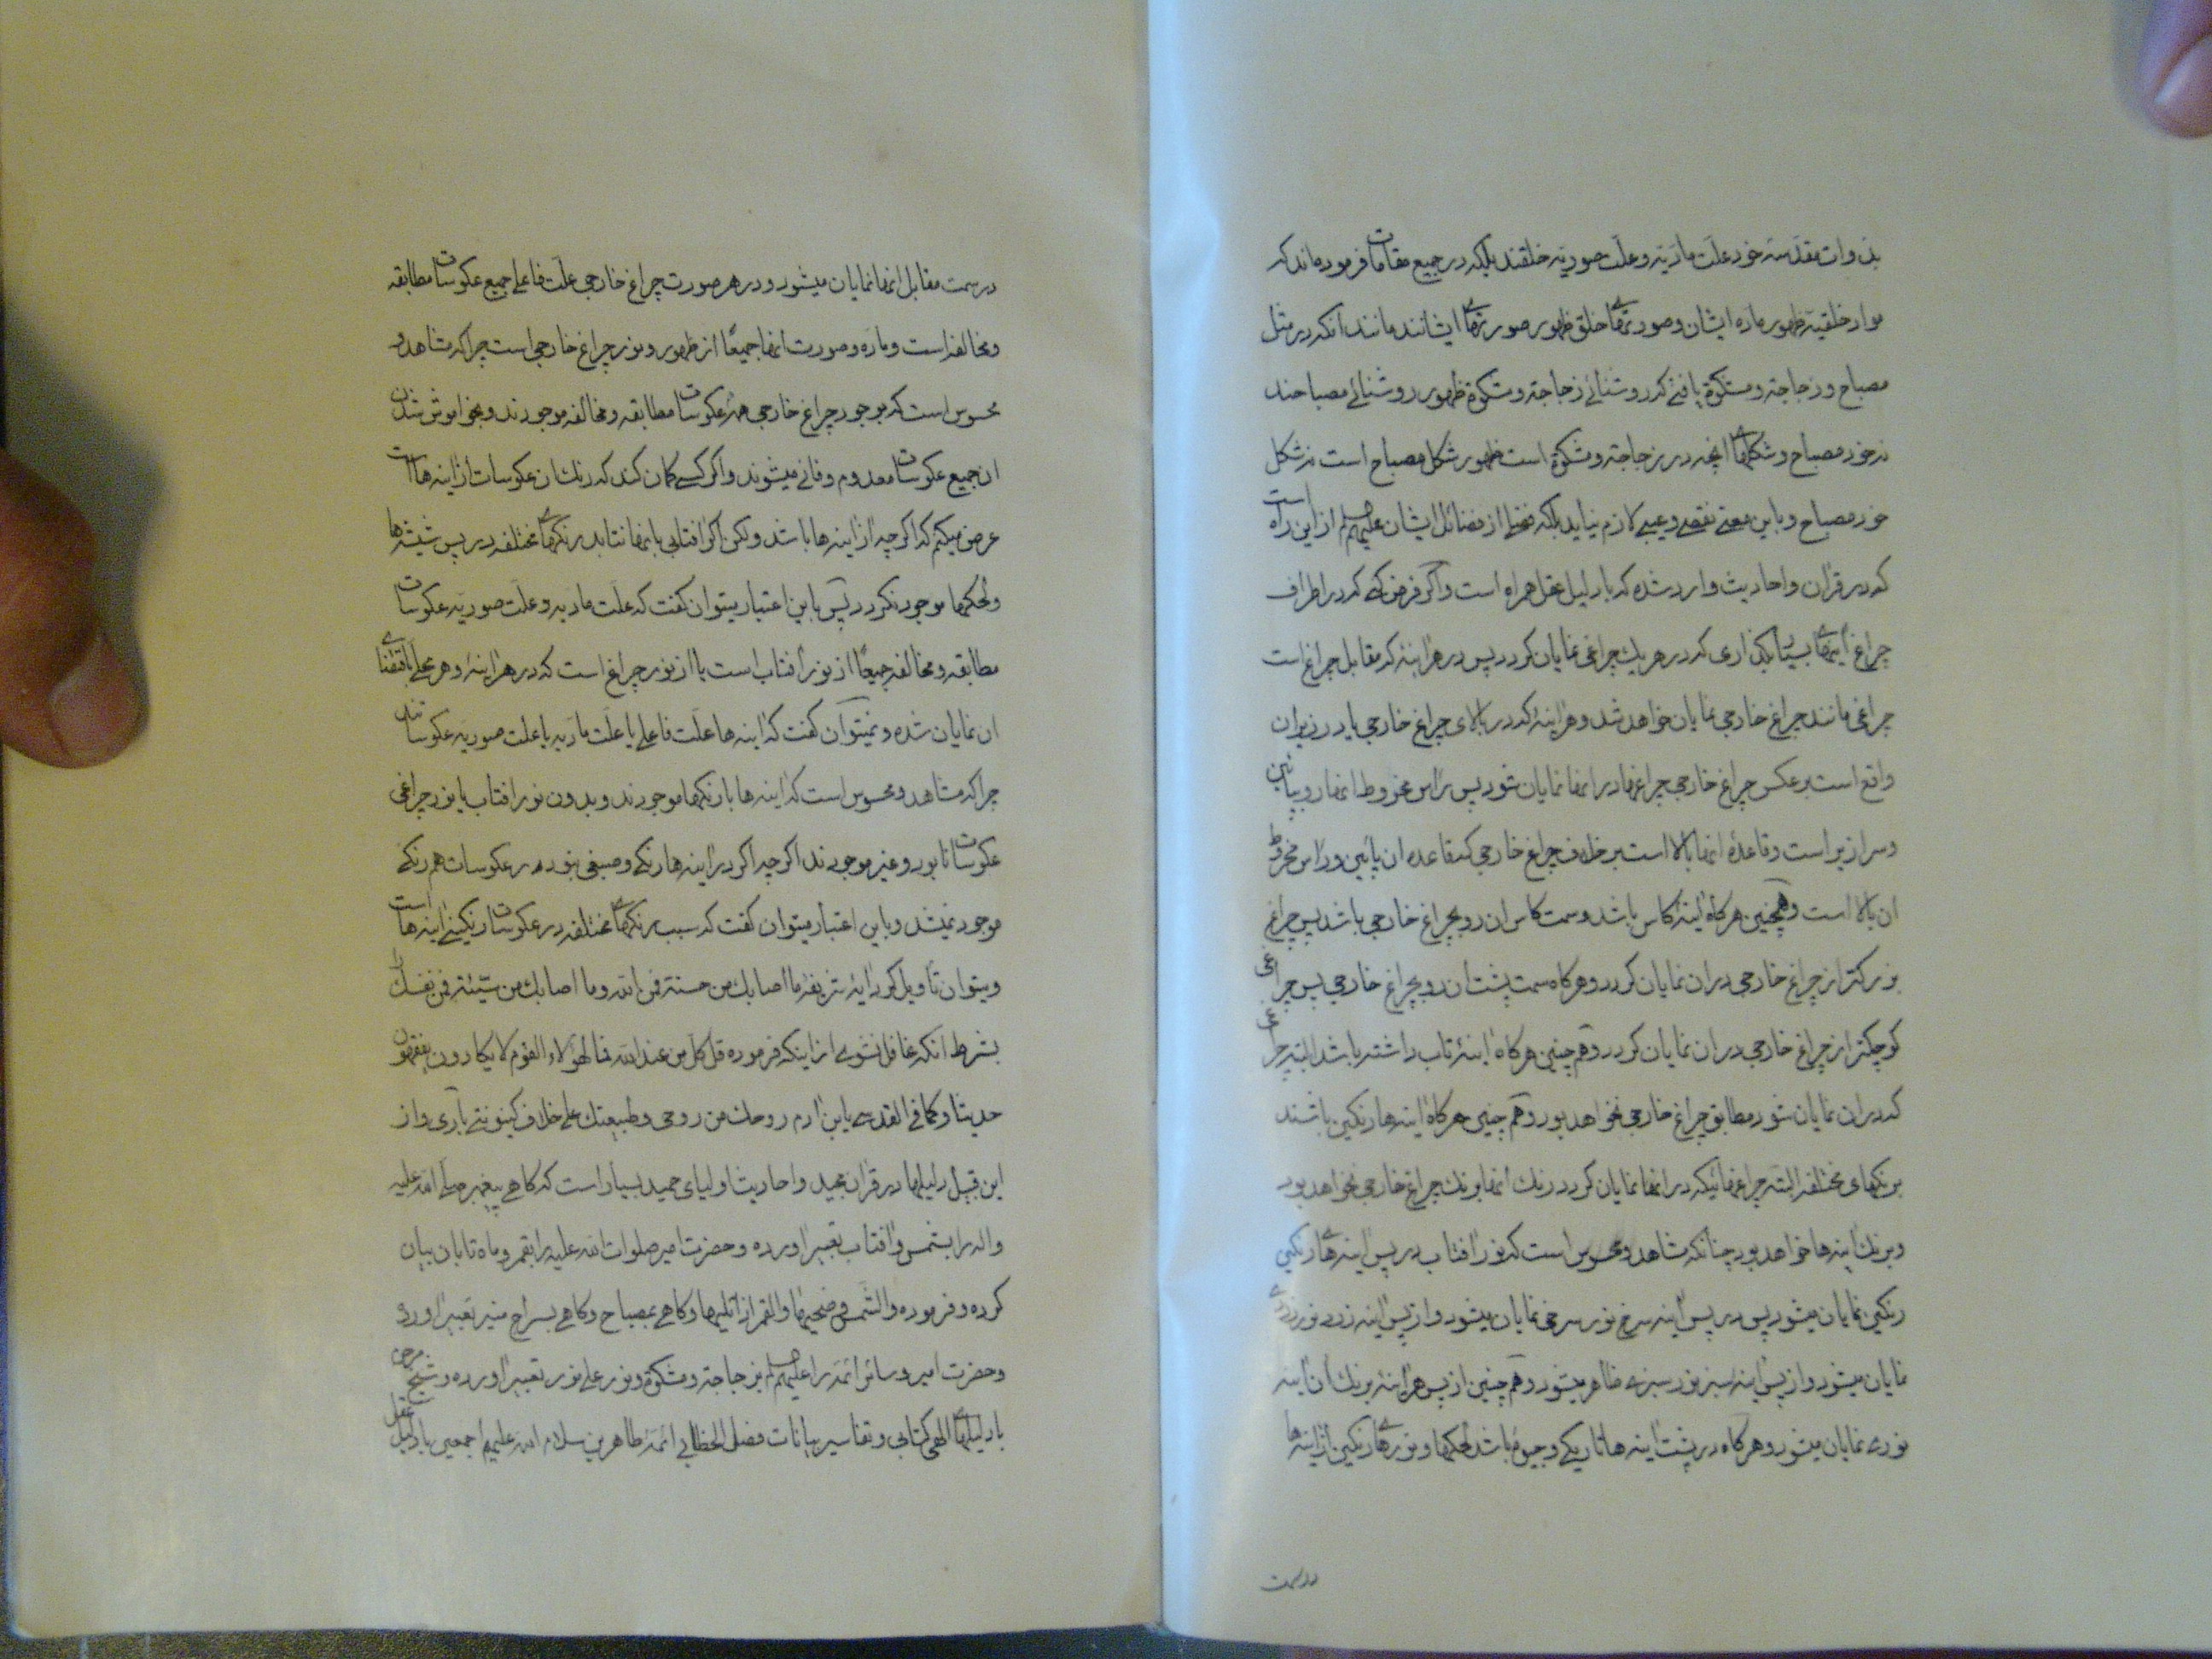 بذوات مقدسه خود علت مادیه و علت صوریه خلقند بلکه در جمیع مقامات فرموده‌اند که
مواد خلقیه ظهور ماده ایشان و صورتهای خلق ظهور صورتهای ایشانند مانند آنکه در مثل
مصباح و زجاجة و مشکوة یافتی که روشنائی زجاجة و مشکوة ظهور روشنائی مصباحند
نه خود مصباح و شکلهای آنچه در زجاجة و مشکوة است ظهور شکل مصباح است نه شکل
خود مصباح و باین معنی نقصی و عیبی لازم نیاید بلکه فضیلتی از فضائل ایشان علیهم السلم از این راه است
که در قران و احادیث وارد شده که با دلیل عقل همراه است و اگر فرض کنی که در اطراف
چراغ آینهای بسیار بگذاری که در هر یک چراغی نمایان گردد پس در هر آینه که مقابل چراغ است
چراغی مانند چراغ خارجی نمایان خواهد شد و هر آینهٔ که در بالای چراغ خارجی یا در زیر آن
واقع است بر عکس چراغ خارجی چراغها در آنها نمایان شود پس رأس مخروط آنها رو بپائین
و سرازیر است و قاعدهٔ آنها بالا است بر خلاف چراغ خارجی که قاعده آن پائین و رأس مخروط
آن بالا است و همچنین هر گاه آینهٔ کاس باشد و سمت کاس آن رو بچراغ خارجی باشد پس چراغ
بزرگتر از چراغ خارجی در آن نمایان گردد و هر گاه سمت پشت آن رو بچراغ خارجی پس چراغی
کوچکتر از چراغ خارجی در آن نمایان گردد و هم چنین هر گاه آینهٔ تاب داشته باشد البته چراغی
که در آن نمایان شود مطابق چراغ خارجی نخواهد بود و هم چنین هر گاه آینه‌ها رنگین باشند
برنگهای مختلفه البته چراغهائیکه در آنها نمایان گردد رنک آنها برنک چراغ خارجی نخواهد بود
و برنک آینه‌ها خواهد بود چنانکه مشاهد و محسوس است که نور آفتاب در پس آینه‌های رنگین
رنگین نمایان میشود پس در پس آینه سرخ نور سرخی نمایان میشود و از پس آینه زرد نور زردی
نمایان میشود و از پس آینه سبز نور سبزی ظاهر میشود و هم چنین از پس هر آینهٔ برنک آن آینه
نوری نمایان میشود و هر گاه در پشت آینه‌ها تاریکی و جیوه باشد لکها و نورهای رنگین از آینه‌ها
در سمت
در سمت مقابل آنها نمایان میشود و در هر صورت چراغ خارجی علت فاعلی جمیع عکوسات مطابقه
و مخالفه است و ماده و صورت آنها جمیعًا از ظهور و نور چراغ خارجی است چرا که مشاهد و
محسوس است که بوجود چراغ خارجی همهٔ عکوسات مطابقه و مخالفه موجودند و بخاموش شدن
آن جمیع عکوسات معدوم و فانی میشوند و اگر کسی گمان کند که رنک آن عکوسات از آینه‌ها است
عرض میکنم که اگر چه از آینه‌ها باشد ولکن اگر آفتابی بآنها نتابد رنگهای مختلفه در پس شیشه‌ها
و لکها موجود نگردد پس باین اعتبار میتوان گفت که علت مادیه و علت صوریه عکوسات
مطابقه و مخالفه جمیعًا از نور آفتاب است یا از نور چراغ است که در هر آینهٔ و هر محلی باقتضای
آن نمایان شده و نمیتوان گفت که آینه‌ها علت فاعلی یا علت مادیه یا علت صوریه عکوساتند
چرا که مشاهد و محسوس است که آینه‌ها با رنگها موجودند و بدون نور آفتاب یا نور چراغی
عکوسات نابود و غیر موجودند اگر چه اگر در آینه‌ها رنگی و صبغی نبود در عکوسات هم رنگی
موجود نمیشد و باین اعتبار میتوان گفت که سبب رنگهای مختلفه در عکوسات رنگینی آینه‌ها است
و میتوان تأویل کرد آیهٔ شریفهٔ ما اصابک من حسنة فمن الله و ما اصابک من سیئة فمن نفسک را
بشرط آنکه غافل نشوی از اینکه فرموده قل کل من عند الله فما لهؤلاء القوم لا یکادون یفقهون
حدیثا و کما فی القدسی یابن آدم روحک من روحی و طبیعتک علی خلاف کینونتی باری و از
این قبیل دلیلها در قران مجید و احادیث اولیای حمید بسیار است که گاهی پیغمبر صلی الله علیه
و اله را بشمس و آفتاب تعبیر آورده و حضرت امیر صلوات الله علیه را بقمر و ماه تابان بیان
کرده و فرموده والشمس و ضحیها والقمر اذا تلیها و گاهی بمصباح و گاهی بسراج منیر تعبیر آورده
و حضرت امیر و سائر ائمه را علیهم السلم بزجاجة و مشکوة و نور علی نور تعبیر آورده و شیخ مرحوم
با دلیلهای الهی کتابی و تفاسیر بیانات فصل الخطابی ائمهٔ طاهرین سلام الله علیهم اجمعین با دلیل عقل